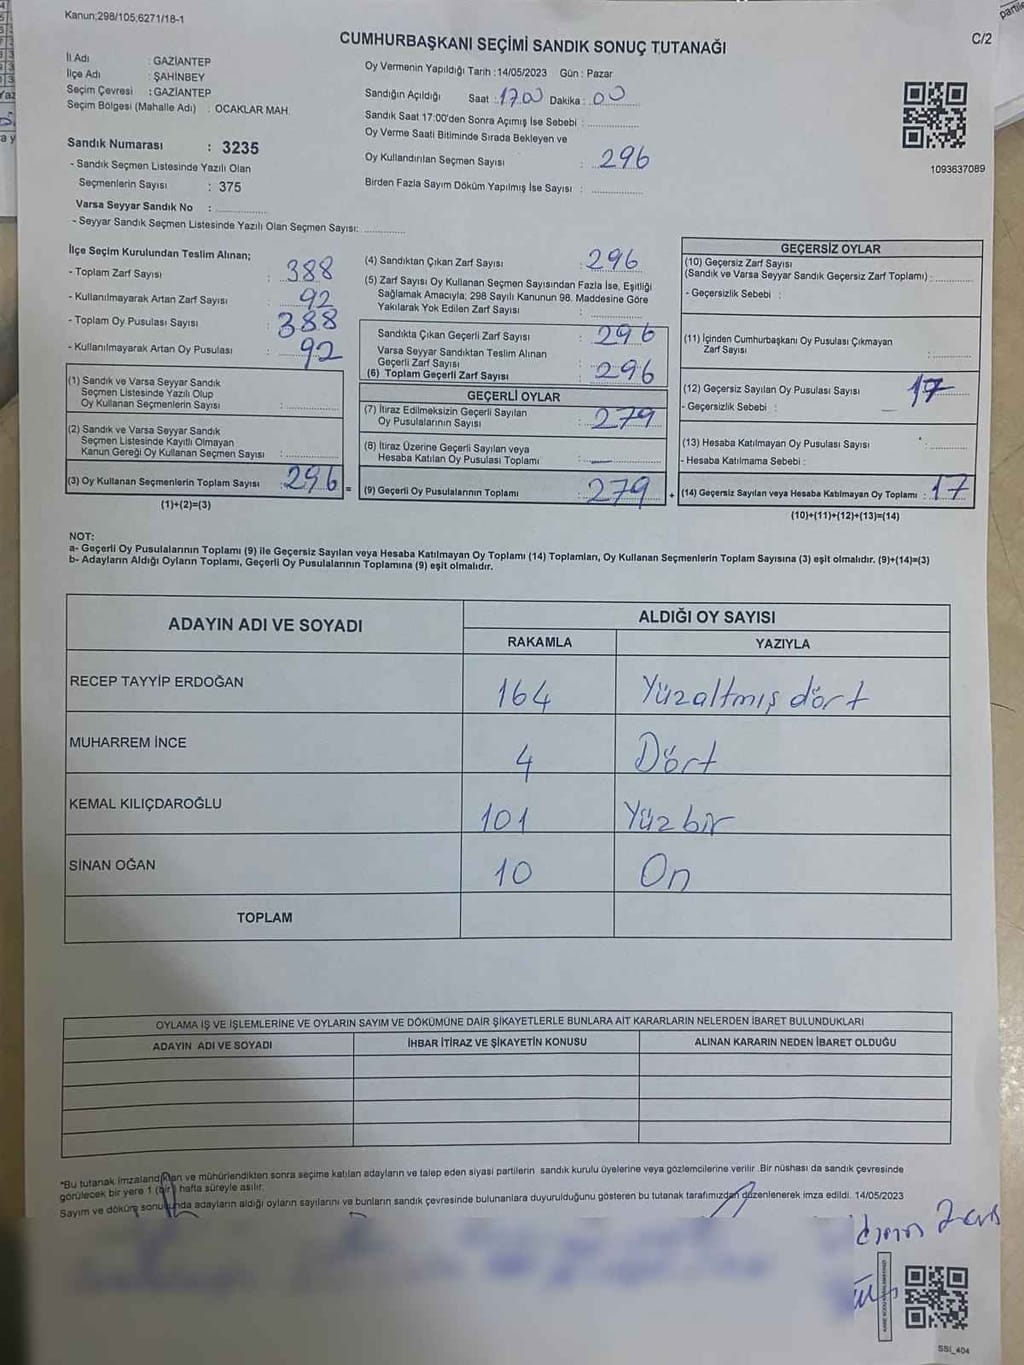 Kanun;298/105;6271/18-1
C/2
CUMHURBAŞKANI SEÇİMİ SANDIK SONUÇ TUTANAĞI
İl Adı : GAZİANTEP
İlçe Adı : ŞAHİNBEY
Seçim Çevresi : GAZİANTEP
Seçim Bölgesi (Mahalle Adı) : OCAKLAR MAH.
Sandık Numarası : 3235
- Sandık Seçmen Listesinde Yazılı Olan
Seçmenlerin Sayısı : 375
Varsa Seyyar Sandık No : ...............
- Seyyar Sandık Seçmen Listesinde Yazılı Olan Seçmen Sayısı: ............
Oy Vermenin Yapıldığı Tarih :14/05/2023 Gün : Pazar
Sandığın Açıldığı Saat : 17.00 Dakika : 00
Sandık Saat 17:00'den Sonra Açımış İse Sebebi : ...............
Oy Verme Saati Bitiminde Sırada Bekleyen ve
Oy Kullandırılan Seçmen Sayısı : 296
Birden Fazla Sayım Döküm Yapılmış İse Sayısı : ...............
1093637089
İlçe Seçim Kurulundan Teslim Alınan;
- Toplam Zarf Sayısı : 388
- Kullanılmayarak Artan Zarf Sayısı : 92
- Toplam Oy Pusulası Sayısı : 388
- Kullanılmayarak Artan Oy Pusulası : 92
(1) Sandık ve Varsa Seyyar Sandık
Seçmen Listesinde Yazılı Olup
Oy Kullanan Seçmenlerin Sayısı : ...............
(2) Sandık ve Varsa Seyyar Sandık
Seçmen Listesinde Kayıtlı Olmayan
Kanun Gereği Oy Kullanan Seçmen Sayısı : ...............
(3) Oy Kullanan Seçmenlerin Toplam Sayısı : 296 =
(1)+(2)=(3)
(4) Sandıktan Çıkan Zarf Sayısı : 296
(5) Zarf Sayısı Oy Kullanan Seçmen Sayısından Fazla İse, Eşitliği
Sağlamak Amacıyla; 298 Sayılı Kanunun 98. Maddesine Göre
Yakılarak Yok Edilen Zarf Sayısı : ...............
Sandıkta Çıkan Geçerli Zarf Sayısı : 296
Varsa Seyyar Sandıktan Teslim Alınan
Geçerli Zarf Sayısı
(6) Toplam Geçerli Zarf Sayısı : 296
GEÇERLİ OYLAR
(7) İtiraz Edilmeksizin Geçerli Sayılan
Oy Pusulalarının Sayısı : 279
(8) İtiraz Üzerine Geçerli Sayılan veya
Hesaba Katılan Oy Pusulası Toplamı : —
(9) Geçerli Oy Pusulalarının Toplamı : 279 +
GEÇERSİZ OYLAR
(10) Geçersiz Zarf Sayısı
(Sandık ve Varsa Seyyar Sandık Geçersiz Zarf Toplamı) : ............
- Geçersizlik Sebebi :
(11) İçinden Cumhurbaşkanı Oy Pusulası Çıkmayan
Zarf Sayısı : ............
(12) Geçersiz Sayılan Oy Pusulası Sayısı : 17
- Geçersizlik Sebebi : —
(13) Hesaba Katılmayan Oy Pusulası Sayısı : ............
- Hesaba Katılmama Sebebi :
(14) Geçersiz Sayılan veya Hesaba Katılmayan Oy Toplamı : 17
(10)+(11)+(12)+(13)=(14)
NOT:
a- Geçerli Oy Pusulalarının Toplamı (9) ile Geçersiz Sayılan veya Hesaba Katılmayan Oy Toplamı (14) Toplamları, Oy Kullanan Seçmenlerin Toplam Sayısına (3) eşit olmalıdır. (9)+(14)=(3)
b- Adayların Aldığı Oyların Toplamı, Geçerli Oy Pusulalarının Toplamına (9) eşit olmalıdır.
ADAYIN ADI VE SOYADI ALDIĞI OY SAYISI
RAKAMLA YAZIYLA
RECEP TAYYİP ERDOĞAN 164 Yüzaltmış dört
MUHARREM İNCE 4 Dört
KEMAL KILIÇDAROĞLU 101 Yüz bir
SİNAN OĞAN 10 On
TOPLAM
OYLAMA İŞ VE İŞLEMLERİNE VE OYLARIN SAYIM VE DÖKÜMÜNE DAİR ŞİKAYETLERLE BUNLARA AİT KARARLARIN NELERDEN İBARET BULUNDUKLARI
ADAYIN ADI VE SOYADI İHBAR İTİRAZ VE ŞİKAYETİN KONUSU ALINAN KARARIN NEDEN İBARET OLDUĞU
*Bu tutanak imzalandıktan ve mühürlendikten sonra seçime katılan adayların ve talep eden siyasi partilerin sandık kurulu üyelerine veya gözlemcilerine verilir. Bir nüshası da sandık çevresinde
görülecek bir yere 1 (bir) hafta süreyle asılır.
Sayım ve döküm sonucunda adayların aldığı oyların sayılarını ve bunların sandık çevresinde bulunanlara duyurulduğunu gösteren bu tutanak tarafımızdan düzenlenerek imza edildi. 14/05/2023
SSİ_404